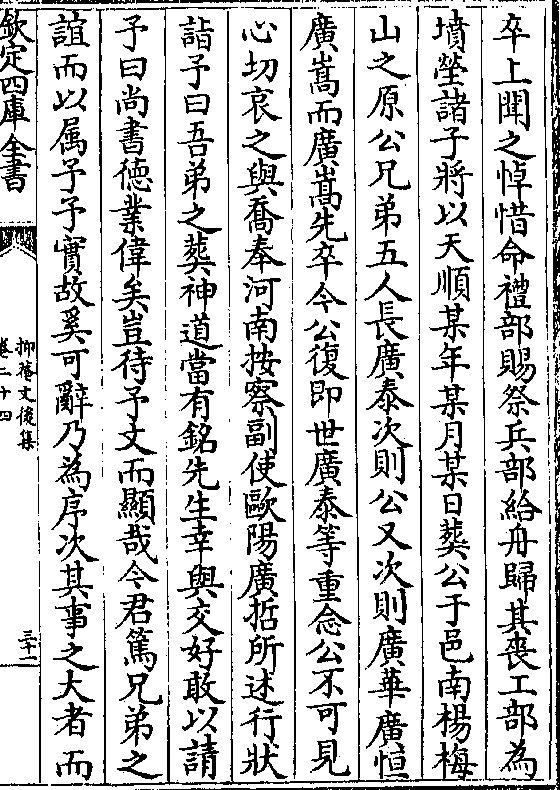 卒上聞之悼惜命禮部賜祭兵部給舟歸其喪工部為
墳塋諸子將以天順某年某月某日葬公于邑南楊梅
山之原公兄弟五人長廣泰次則公又次則廣華廣恒
廣嵩而廣嵩先卒今公復即世廣泰等重念公不可見
心切哀之與喬奉河南按察副使歐陽廣哲所述行狀
詣予曰吾弟之葬神道當有銘先生幸與交好敢以請
予曰尚書徳業偉矣豈待予文而顯哉令君篤兄弟之
誼而以属予予實故奚可辭乃為序次其事之大者而
欽定四庫全書
抑菴文後集
卷二十四
三十一